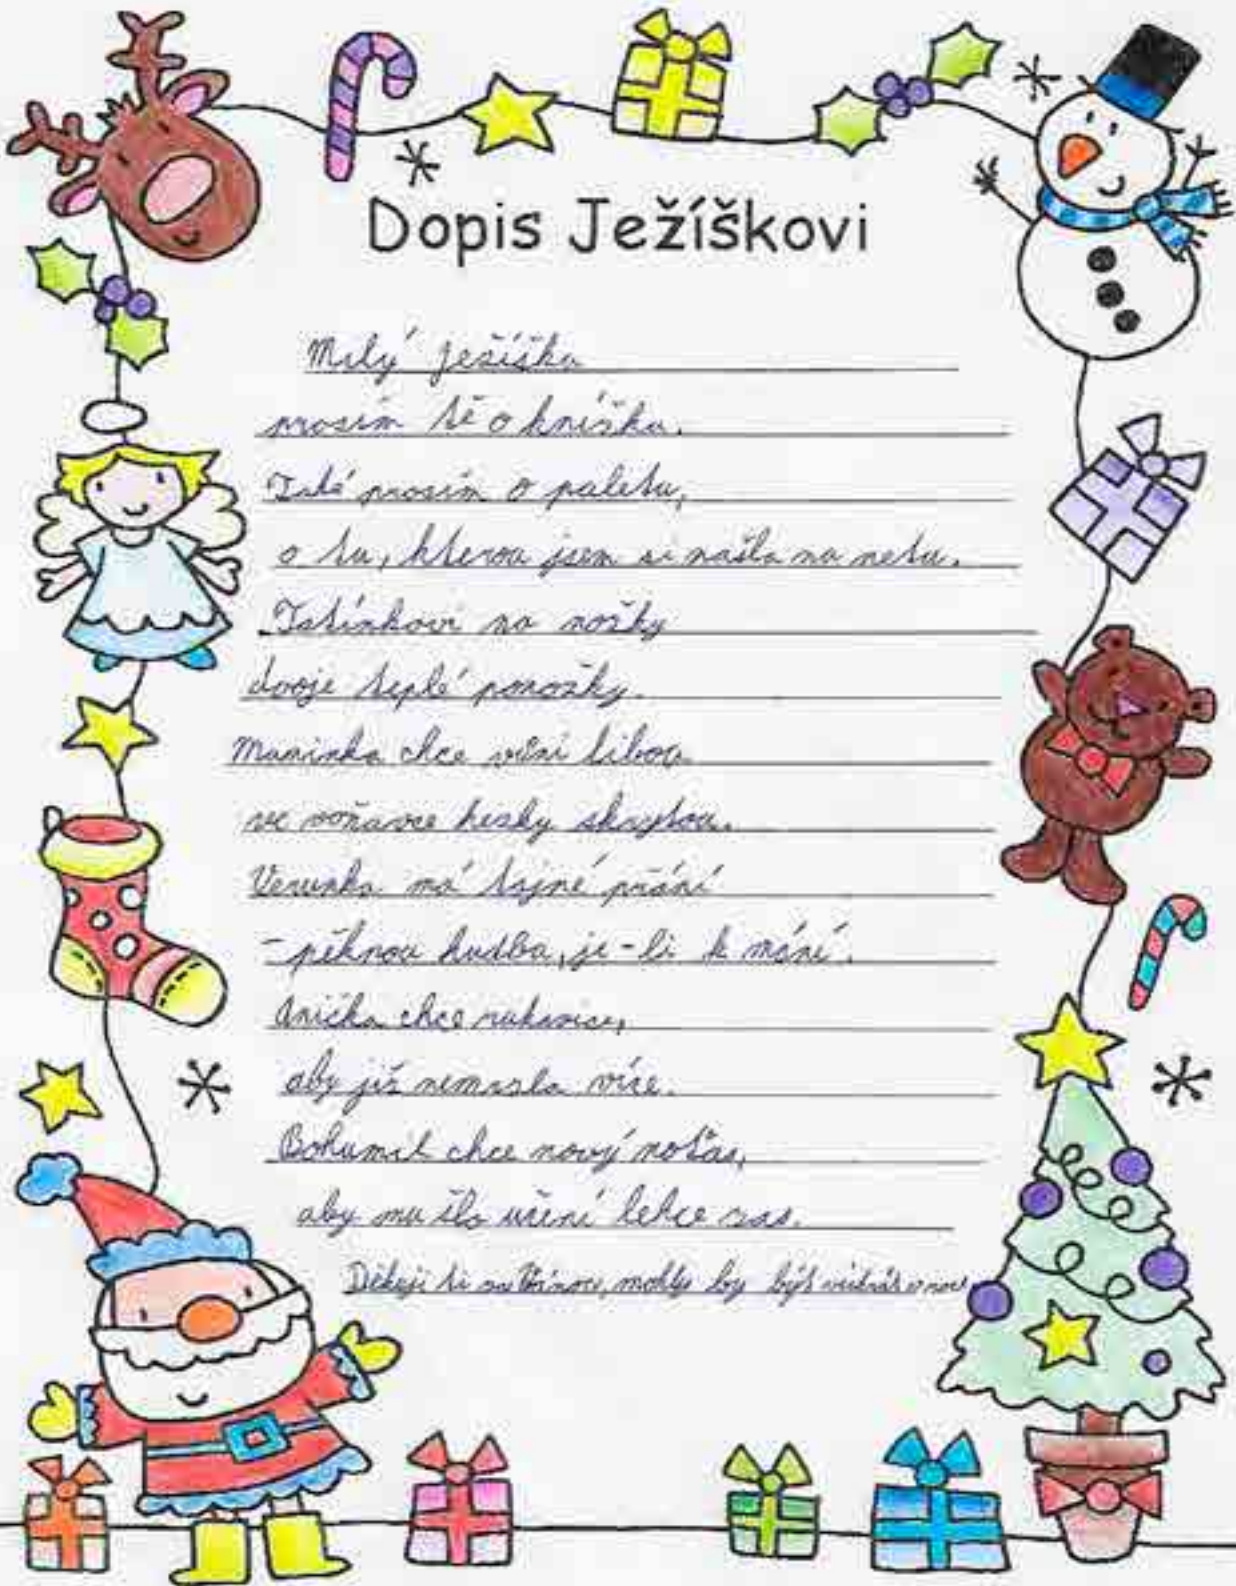 Dopis Ježíškovi
Milý ježíšku
prosím tě o knížku.
Také prosím o paletu,
o tu, kterou jsem si našla na netu.
Tatínkovi na nožky
dvoje teplé ponožky.
Maminka chce vůni libou
ve voňavce hezky skrytou.
Verunka má tajné přání
- pěknou hudbu, je-li k mání.
Anička chce rukavice,
aby již nemrzla více.
Bohumil chce nový noťas,
aby mu šlo učení lehce zas.
Děkuji ti za Vánoce, mohly by být